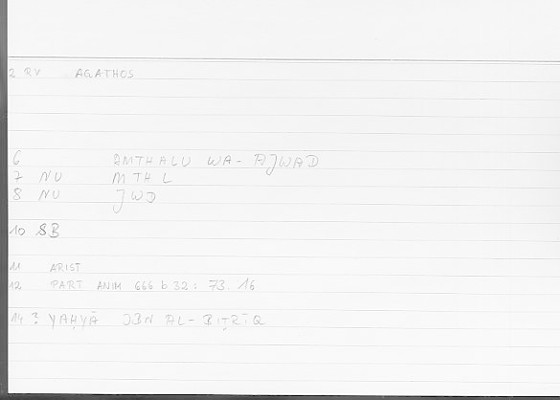 2 RV AGATHOS
6 AMTHALU WA-AJWAD
7 NU MTHL
8 NU JWD
10 SB
11 ARIST
12 PART ANIM 666 b 32 : 73.16
14 ? YAḤYĀ IBN AL-BIṬRĪQ